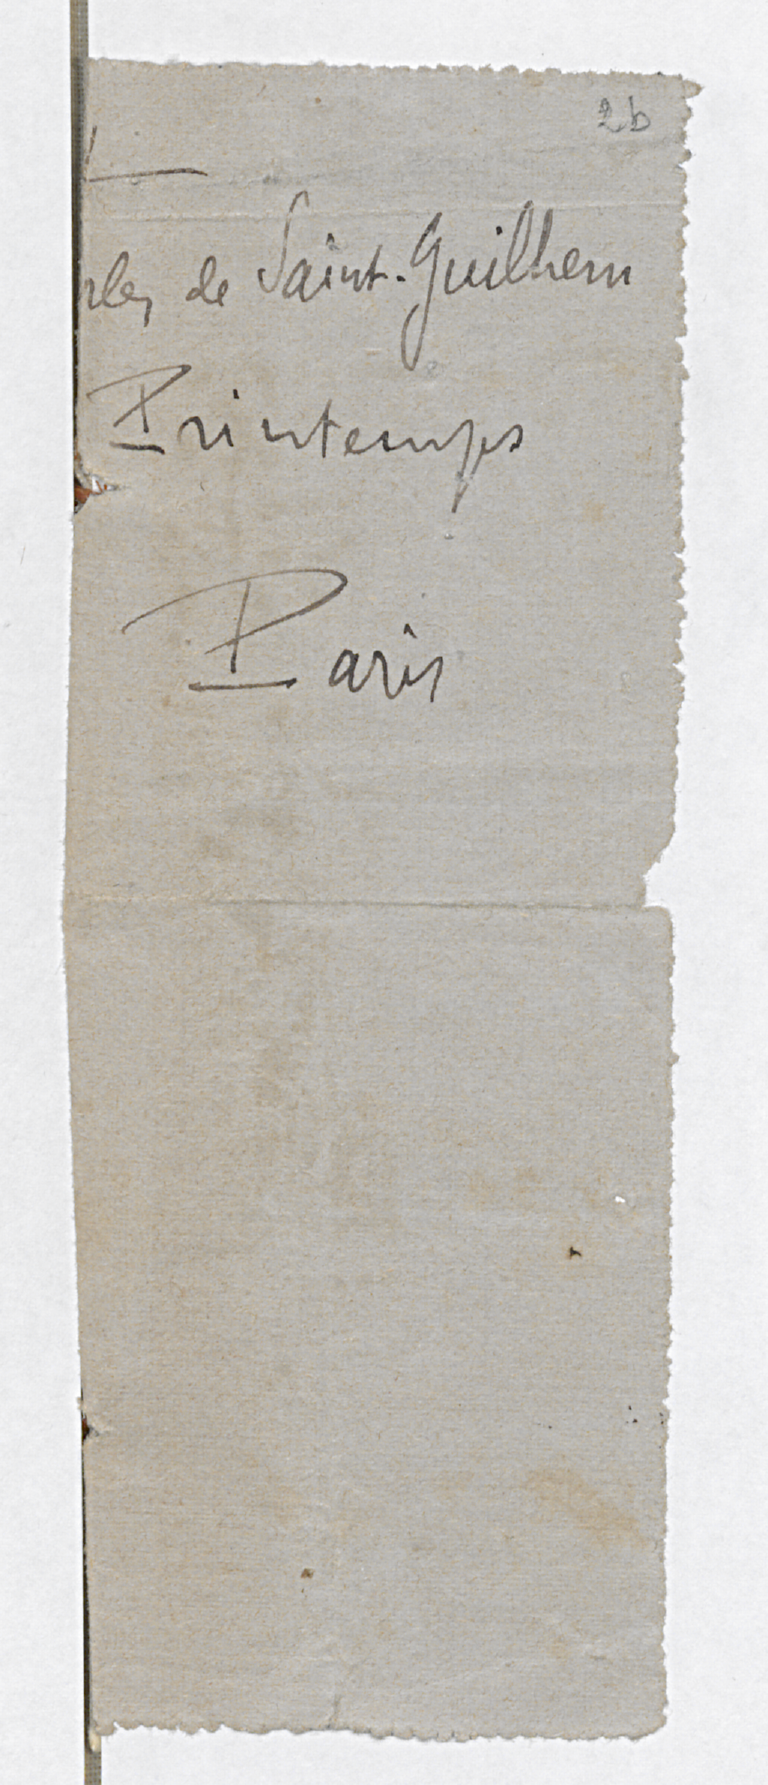 2b
rles de Saint-Guilhem
Printemps
Paris